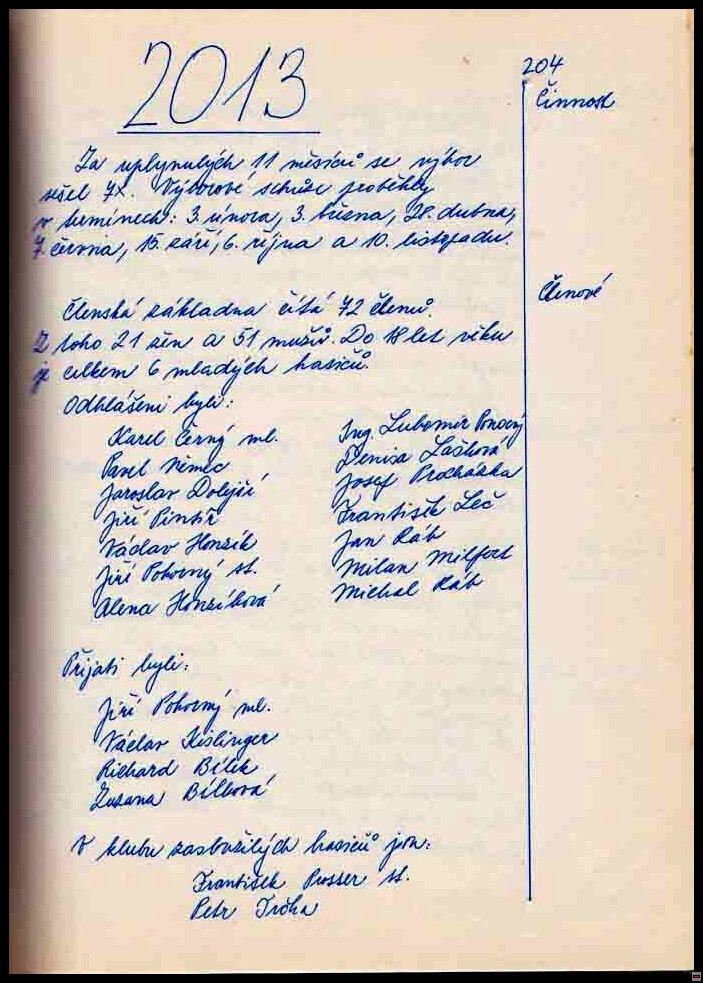 2013
204
Činnost
Za uplynulých 11 měsíců se výbor
sešel 7x. Výborové schůze proběhly
v termínech: 3. února, 3. března, 28. dubna,
7. června, 15. září, 6. října a 10. listopadu.
Členové
Členská základna čítá 72 členů.
Z toho 21 žen a 51 mužů. Do 18 let věku
je celkem 6 mladých hasičů.
Odhlášeni byli:
Karel Černý ml.
Pavel Němec
Jaroslav Dolejší
Jiří Pintíř
Václav Honzík
Jiří Pokorný st.
Alena Honzíková
Ing. Lubomír
Denisa Lašková
Josef Procházka
František Leč
Jan Ráb
Milan Milfort
Michal Ráb
Přijati byli:
Jiří Pokorný ml.
Václav Kislinger
Richard Bílek
Zuzana Bílková
V klubu zasloužilých hasičů jsou:
František Prosser st.
Petr Trčka